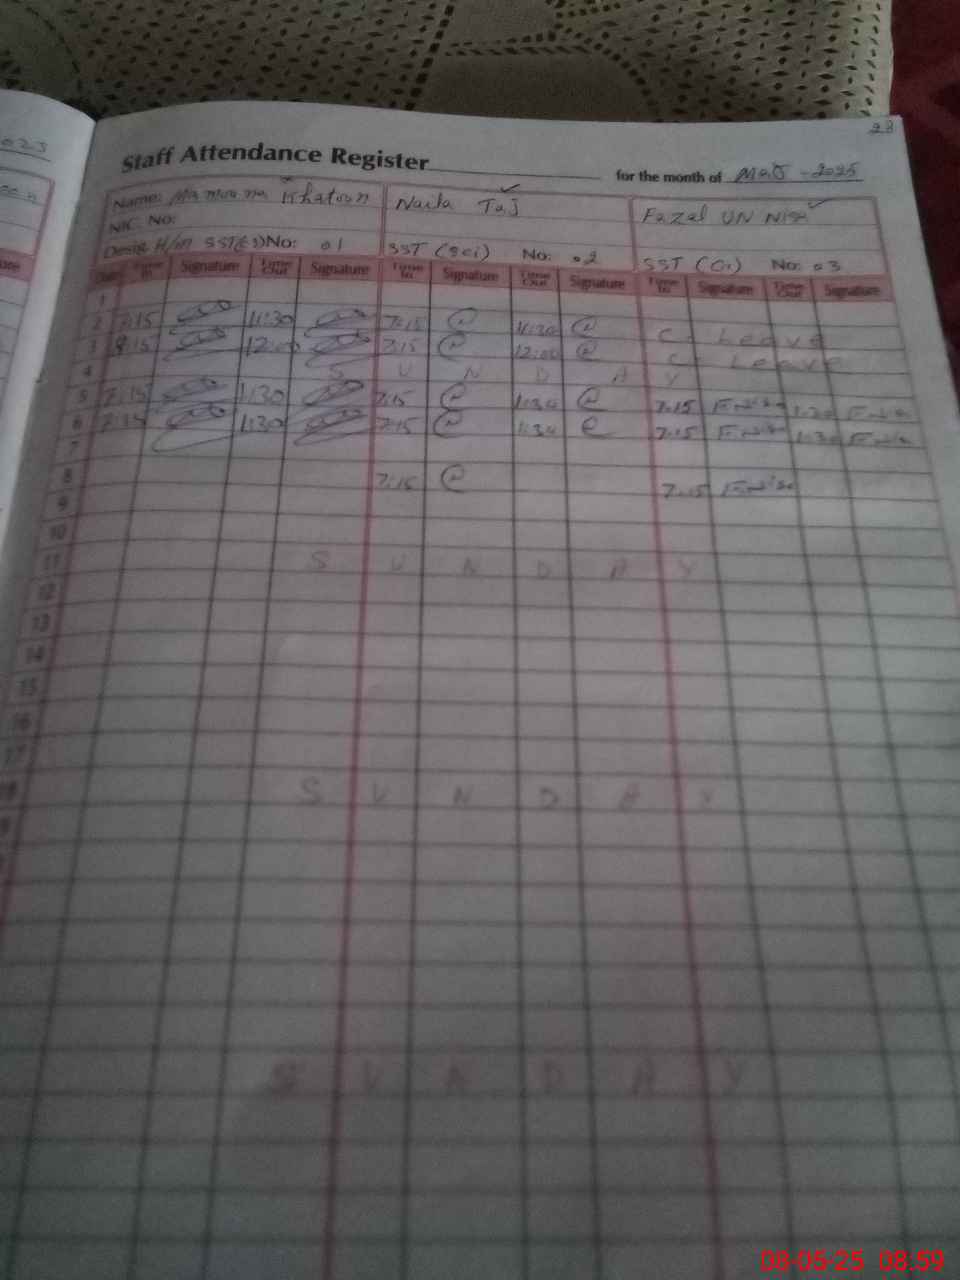 023
28
Staff Attendance Register for the month of May - 2025
Name: Khatoon Naila Taj Fazal UN Nisa
NIC. No:
Desig: H/M SST(G) No: 01 SST (Sci) No: 02 SST (G) No: 03
Date Time In Signature Time Out Signature Time In Signature Time Out Signature Time In Signature Time Out Signature
1
2 7:15 11:30 7:15 11:30 C- Leave
3 8:15 12:00 7:15 12:00 C- Leave
4 S U N D A Y
5 7:15 1:30 7:15 1:30 7:15 1:30
6 7:15 1:30 7:15 1:30 7:15 1:30
7
8 7:15 7:15
9
10
11 S U N D A Y
12
13
14
15
16
17
18 S U N D A Y
S U N D A Y
08-05-25 08:59